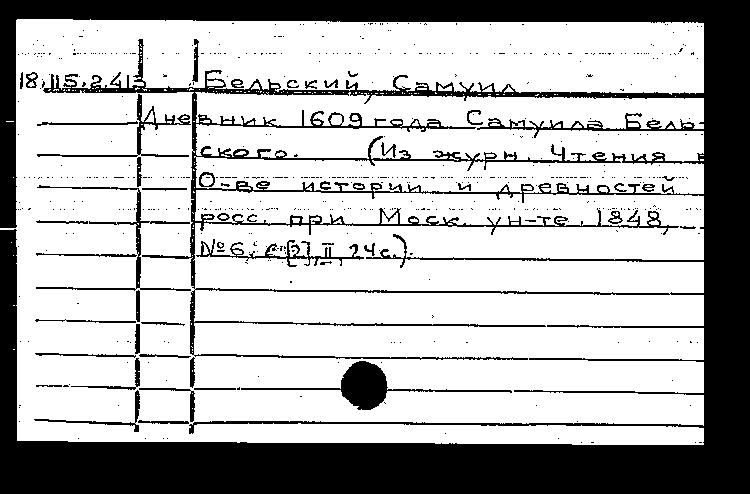 18.115.2.413 Бельский, Самуил
Дневник 1609 года Самуила Бель-
ского. (Из журн. Чтения в
О-ве истории и древностей
росс. при Моск. ун-те. 1848,
№6. с. [2], II, 24 с.).